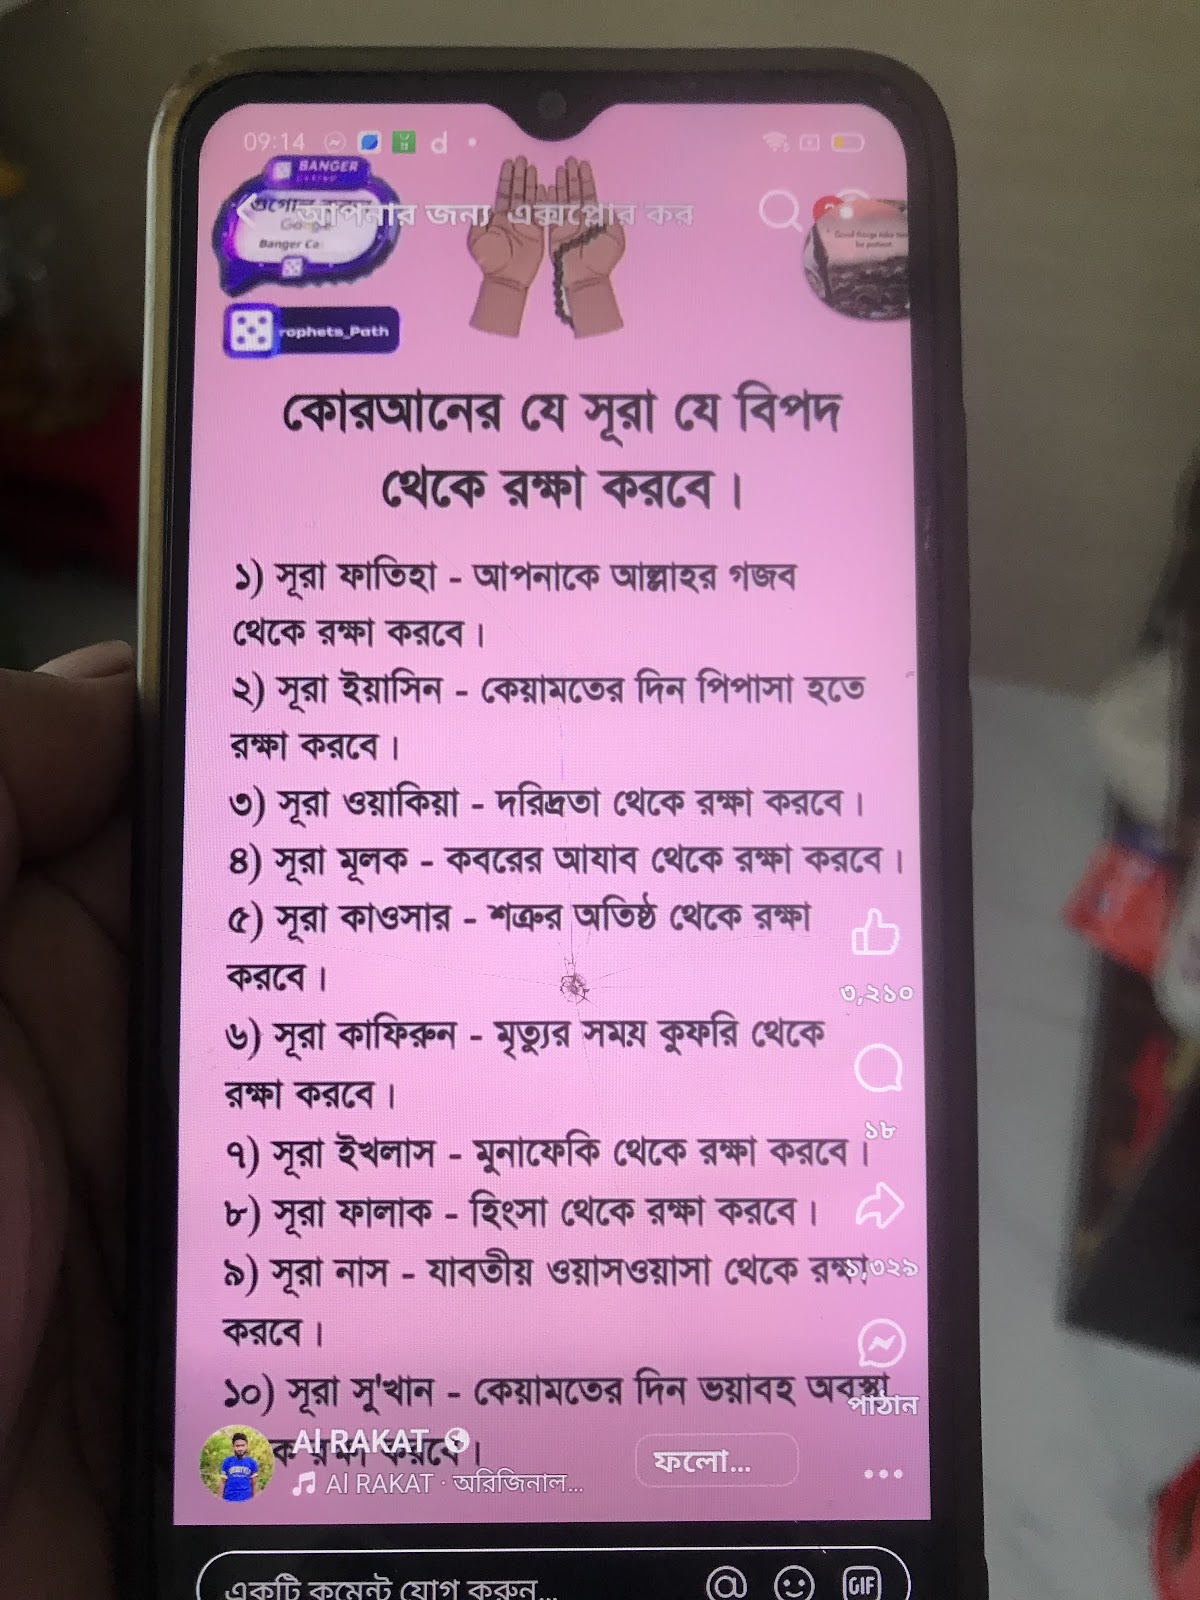 09:14
BANGER
আপনার জন্য এক্সপ্লোর কর
Banger Ca
rophets_Path
Good things take
be patient.
কোরআনের যে সূরা যে বিপদ
থেকে রক্ষা করবে।
১) সূরা ফাতিহা - আপনাকে আল্লাহর গজব
থেকে রক্ষা করবে।
২) সূরা ইয়াসিন - কেয়ামতের দিন পিপাসা হতে
রক্ষা করবে।
৩) সূরা ওয়াকিয়া - দরিদ্রতা থেকে রক্ষা করবে।
৪) সূরা মূলক - কবরের আযাব থেকে রক্ষা করবে।
৫) সূরা কাওসার - শত্রুর অতিষ্ঠ থেকে রক্ষা
করবে।
৩,২১০
৬) সূরা কাফিরুন - মৃত্যুর সময় কুফরি থেকে
রক্ষা করবে।
১৮
৭) সূরা ইখলাস - মুনাফেকি থেকে রক্ষা করবে।
৮) সূরা ফালাক - হিংসা থেকে রক্ষা করবে।
৯) সূরা নাস - যাবতীয় ওয়াসওয়াসা থেকে রক্ষা
১,৩২৯
করবে।
১০) সূরা সু'খান - কেয়ামতের দিন ভয়াবহ অবস্থা
পাঠান
রক্ষা করবে।
Al RAKAT
ফলো...
Al RAKAT · অরিজিনাল...
একটি কমেন্ট যোগ করুন...
GIF